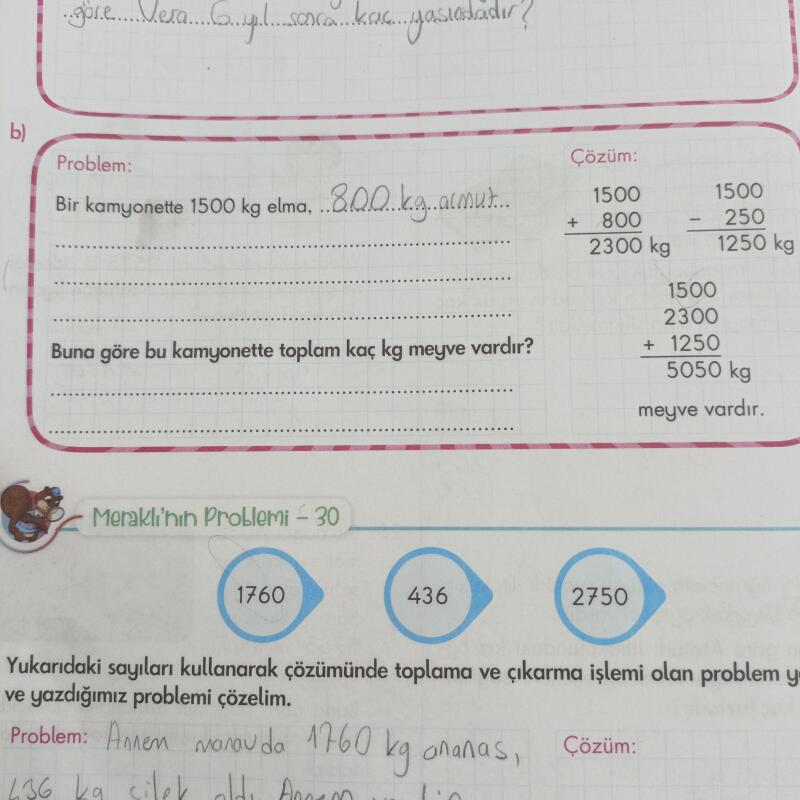 göre Vera 6 yıl sonra kaç yaşındadır?
b)
Problem:
Bir kamyonette 1500 kg elma, 800 kg armut
Buna göre bu kamyonette toplam kaç kg meyve vardır?
Çözüm:
1500 1500
+ 800 - 250
2300 kg 1250 kg
1500
2300
+ 1250
5050 kg
meyve vardır.
Meraklı'nın Problemi - 30
1760 436 2750
Yukarıdaki sayıları kullanarak çözümünde toplama ve çıkarma işlemi olan problem
ve yazdığımız problemi çözelim.
Problem: Annem manavda 1760 kg ananas,
Çözüm:
436 kg çilek aldı Annem